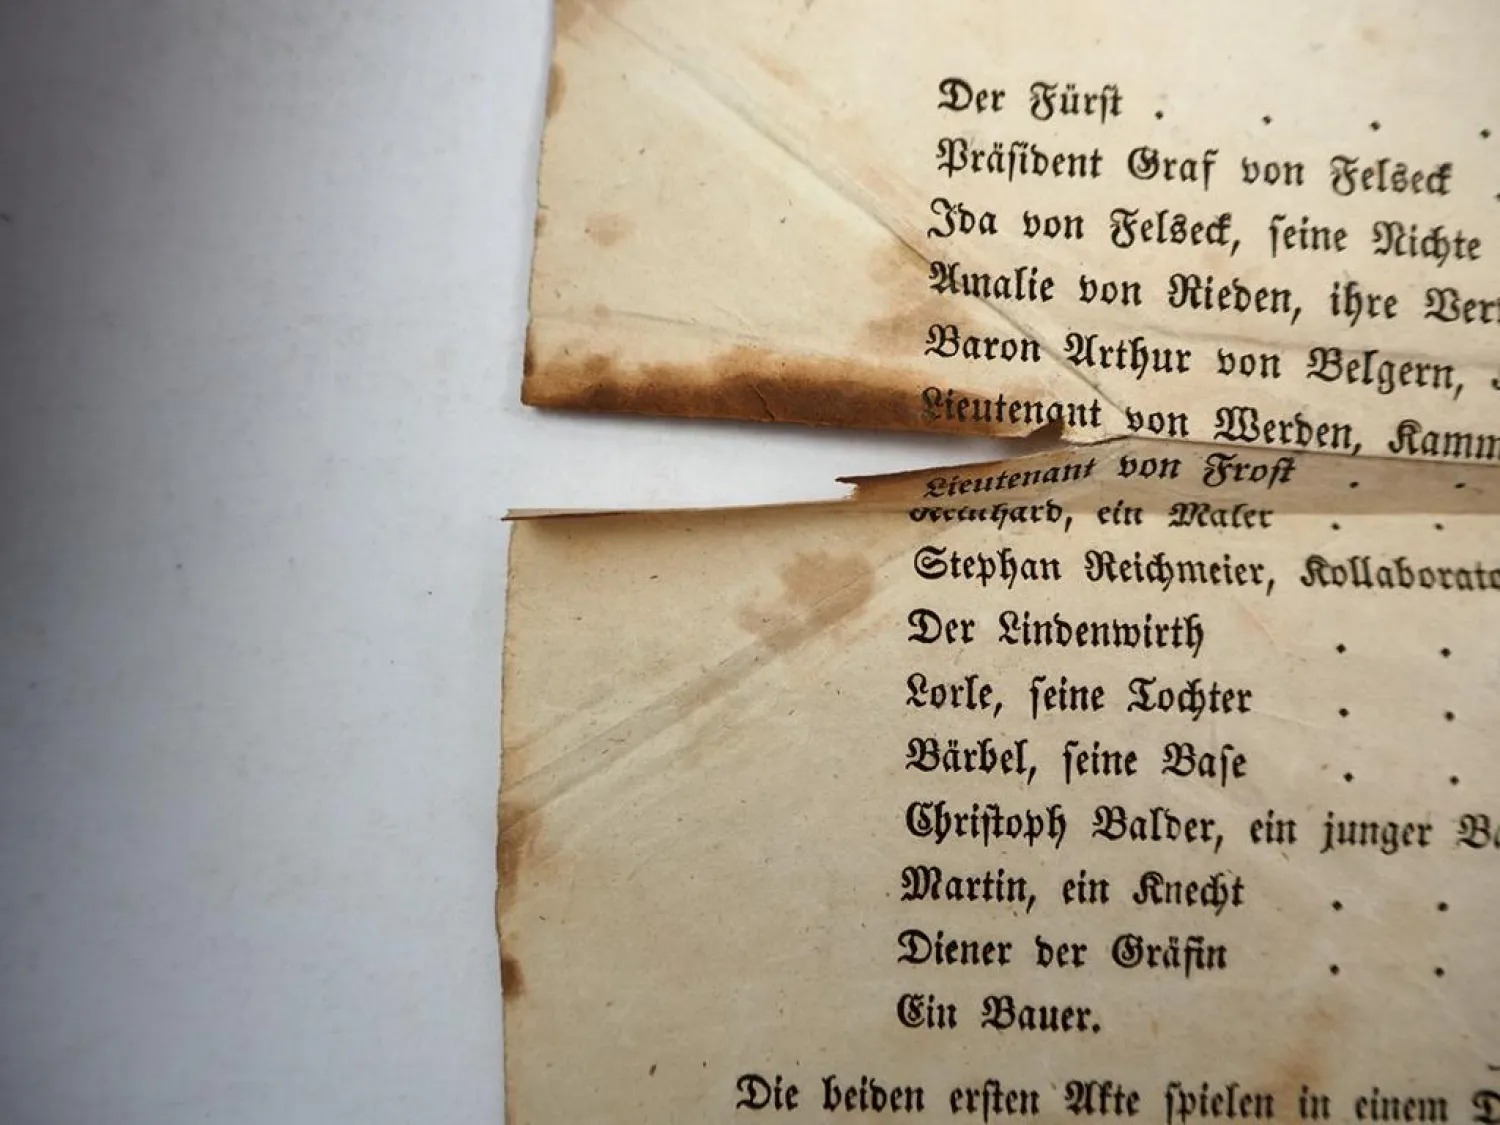 Der Fürst . . . .
Präsident Graf von Felseck .
Ida von Felseck, seine Nichte
Amalie von Rieden, ihre
Baron Arthur von Belgern,
Lieutenant von Werden,
Lieutenant von Frost . .
ein Maler . .
Stephan Reichmeier,
Der Lindenwirth . .
Lorle, seine Tochter . .
Bärbel, seine Base . .
Christoph Balder, ein junger
Martin, ein Knecht . .
Diener der Gräfin . .
Ein Bauer.
Die beiden ersten Akte spielen in einem